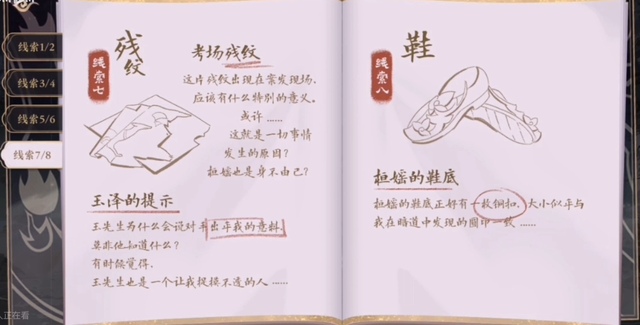 线索1/2
线索3/4
线索5/6
线索7/8
残纹
线索七
考场残纹
这片残纹出现在案发现场,
应该有什么特别的意义。
或许 ……
这就是一切事情
发生的原因?
桓媱也是身不由己?
王泽的提示
王先生为什么会说对手出乎我的意料,
莫非他知道什么?
有时候觉得,
王先生也是一个让我捉摸不透的人 ……
鞋
线索八
桓媱的鞋底
桓媱的鞋底正好有一枚铜扣, 大小似乎与
我在暗道中发现的圆印一致 ……
人正在看